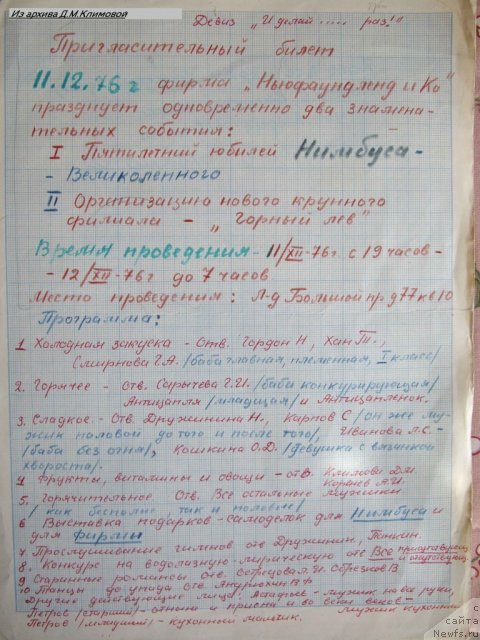 Из архива Д.М.Климовой
Девиз „И делай ..... раз!"
Пригласительный билет
11.12.76 г фирма „Ньюфаундленд и Ко"
празднует одновременно два знамена-
тельных события:
I Пятилетний юбилей Нимбуса-
- Великолепного
II Организация нового крупного
филиала - „Горный лев"
Время проведения - 11/XII-76г с 19 часов -
- 12/XII-76г до 7 часов
Место проведения: Л-д Большой пр д 77 кв 10
Программа:
1 Холодная закуска - Отв. Гордон Н, Хан Т.,
Смирнова Г.А. /баба главная, племенная, I класс/
2. Горячее - отв. Сарычева Г.И. /баба конкурирующая/
Антицапля /младшая/ и Антицапленок.
3. Сладкое - Отв. Дружинина Н., Карпов С /он же му-
жик половой до того и после того/, Иванова Л.С. -
/баба без огня/, Кошкина О.Д. /девушка с вязанкой
хвороста/.
4 Фрукты, витамины и овощи - отв. Климова Д.М.
5. Горячительное. Отв. Все остальные мужики
/как бесполые, так и половые/
6 Выставка подарков-самоделок для Нимбуса и
для фирмы
7. Прослушивание гимнов отв Дружинин,
8. Конкурс на водолазную лирическую отв Все присутствующ.
и отсутствующ.
9 Старинные романсы отв.
10 Танцы до упада отв.
Другие действующие лица: - мужик на все руки,
Петров (старший) - отныне и присно и во веки веков -
мужик кухонный
Петров (младший) - кухонный мальчик.
с
сайта
Newfs.ru